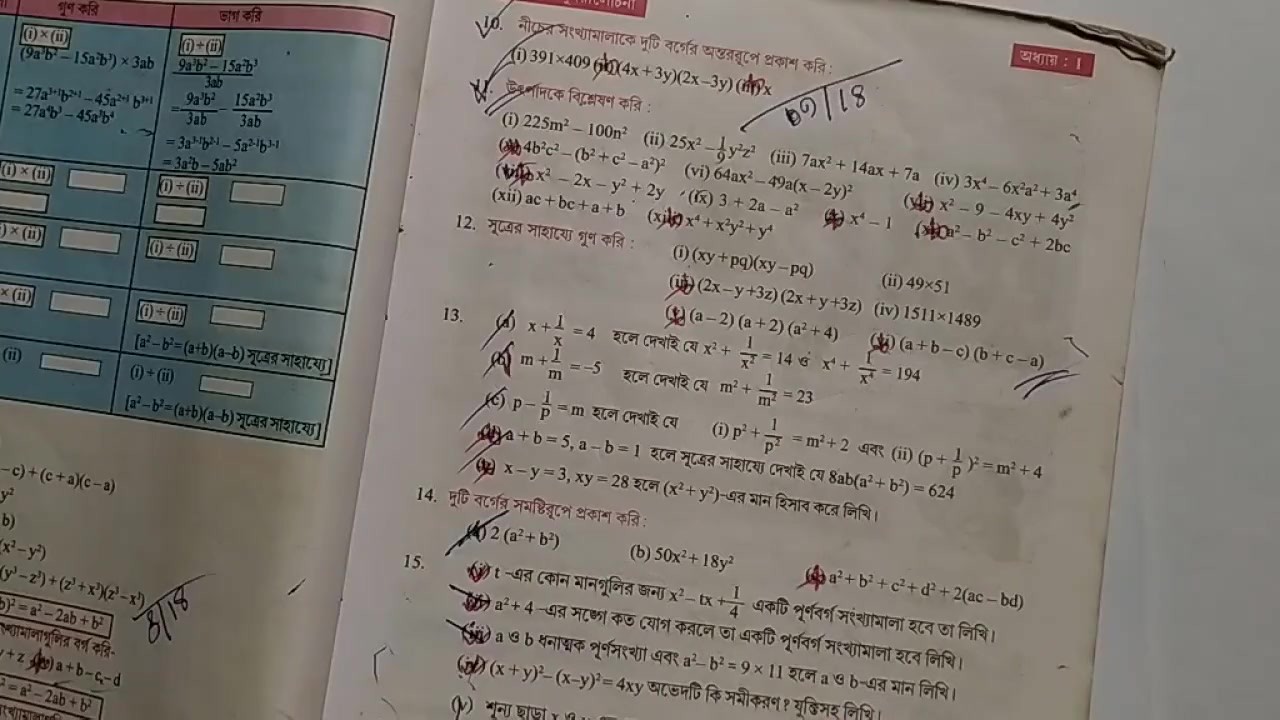 গুণ করি
ভাগ করি
(i) × (ii)
(i) ÷ (ii)
(9a³b² – 15a²b³) × 3ab
9a³b² – 15a²b³
3ab
= 27a³⁺¹b²⁺¹ – 45a²⁺¹ b³⁺¹
= 9a³b²/3ab – 15a²b³/3ab
= 27a⁴b³ – 45a³b⁴
= 3a³⁻¹b²⁻¹ – 5a²⁻¹b³⁻¹
= 3a²b – 5ab²
(i) × (ii)
(i) ÷ (ii)
(i) × (ii)
(i) ÷ (ii)
× (ii)
(i) ÷ (ii)
[a² – b² = (a+b)(a–b) সূত্রের সাহায্যে]
(ii)
(i) ÷ (ii)
[a² – b² = (a+b)(a–b) সূত্রের সাহায্যে]
–c) + (c + a)(c – a)
y²
b)
(x² – y²)
(y³ – z³) + (z³ + x³)(z³ – x³)
b)² = a² – 2ab + b²
সংখ্যামালাগুলির বর্গ করি-
+ z
a + b – c – d
² = a² – 2ab + b²
8/18
অধ্যায় : 1
10. নীচের সংখ্যামালাকে দুটি বর্গের অন্তররূপে প্রকাশ করি :
(i) 391×409 (ii) (4x + 3y)(2x – 3y) (iii) x
09/18
উৎপাদকে বিশ্লেষণ করি :
(i) 225m² – 100n² (ii) 25x² – 1/9 y²z² (iii) 7ax² + 14ax + 7a (iv) 3x⁴ – 6x²a² + 3a⁴
(v) 4b²c² – (b² + c² – a²)² (vi) 64ax² – 49a(x – 2y)² (vii) x² – 9 – 4xy + 4y²
(viii) x² – 2x – y² + 2y (ix) 3 + 2a – a² (x) x⁴ – 1 (xi) a² – b² – c² + 2bc
(xii) ac + bc + a + b (xiii) x⁴ + x²y² + y⁴
12. সূত্রের সাহায্যে গুণ করি : (i) (xy + pq)(xy – pq) (ii) 49×51
(iii) (2x – y + 3z) (2x + y + 3z) (iv) 1511×1489
(v) (a – 2) (a + 2) (a² + 4) (vi) (a + b – c) (b + c – a)
13. (a) x + 1/x = 4 হলে দেখাই যে x² + 1/x² = 14 ও x⁴ + 1/x⁴ = 194
(b) m + 1/m = –5 হলে দেখাই যে m² + 1/m² = 23
(c) p – 1/p = m হলে দেখাই যে (i) p² + 1/p² = m² + 2 এবং (ii) (p + 1/p)² = m² + 4
(d) a + b = 5, a – b = 1 হলে সূত্রের সাহায্যে দেখাই যে 8ab(a² + b²) = 624
(e) x – y = 3, xy = 28 হলে (x² + y²)-এর মান হিসাব করে লিখি।
14. দুটি বর্গের সমষ্টিরূপে প্রকাশ করি :
(a) 2 (a² + b²) (b) 50x² + 18y² (c) a² + b² + c² + d² + 2(ac – bd)
15. (i) t -এর কোন মানগুলির জন্য x² – tx + 1/4 একটি পূর্ণবর্গ সংখ্যামালা হবে তা লিখি।
(ii) a² + 4 -এর সঙ্গে কত যোগ করলে তা একটি পূর্ণবর্গ সংখ্যামালা হবে লিখি।
(iii) a ও b ধনাত্মক পূর্ণসংখ্যা এবং a² – b² = 9 × 11 হলে a ও b-এর মান লিখি।
(iv) (x + y)² – (x – y)² = 4xy অভেদটি কি সমীকরণ? যুক্তিসহ লিখি।
(v) শূন্য ছাড়া x